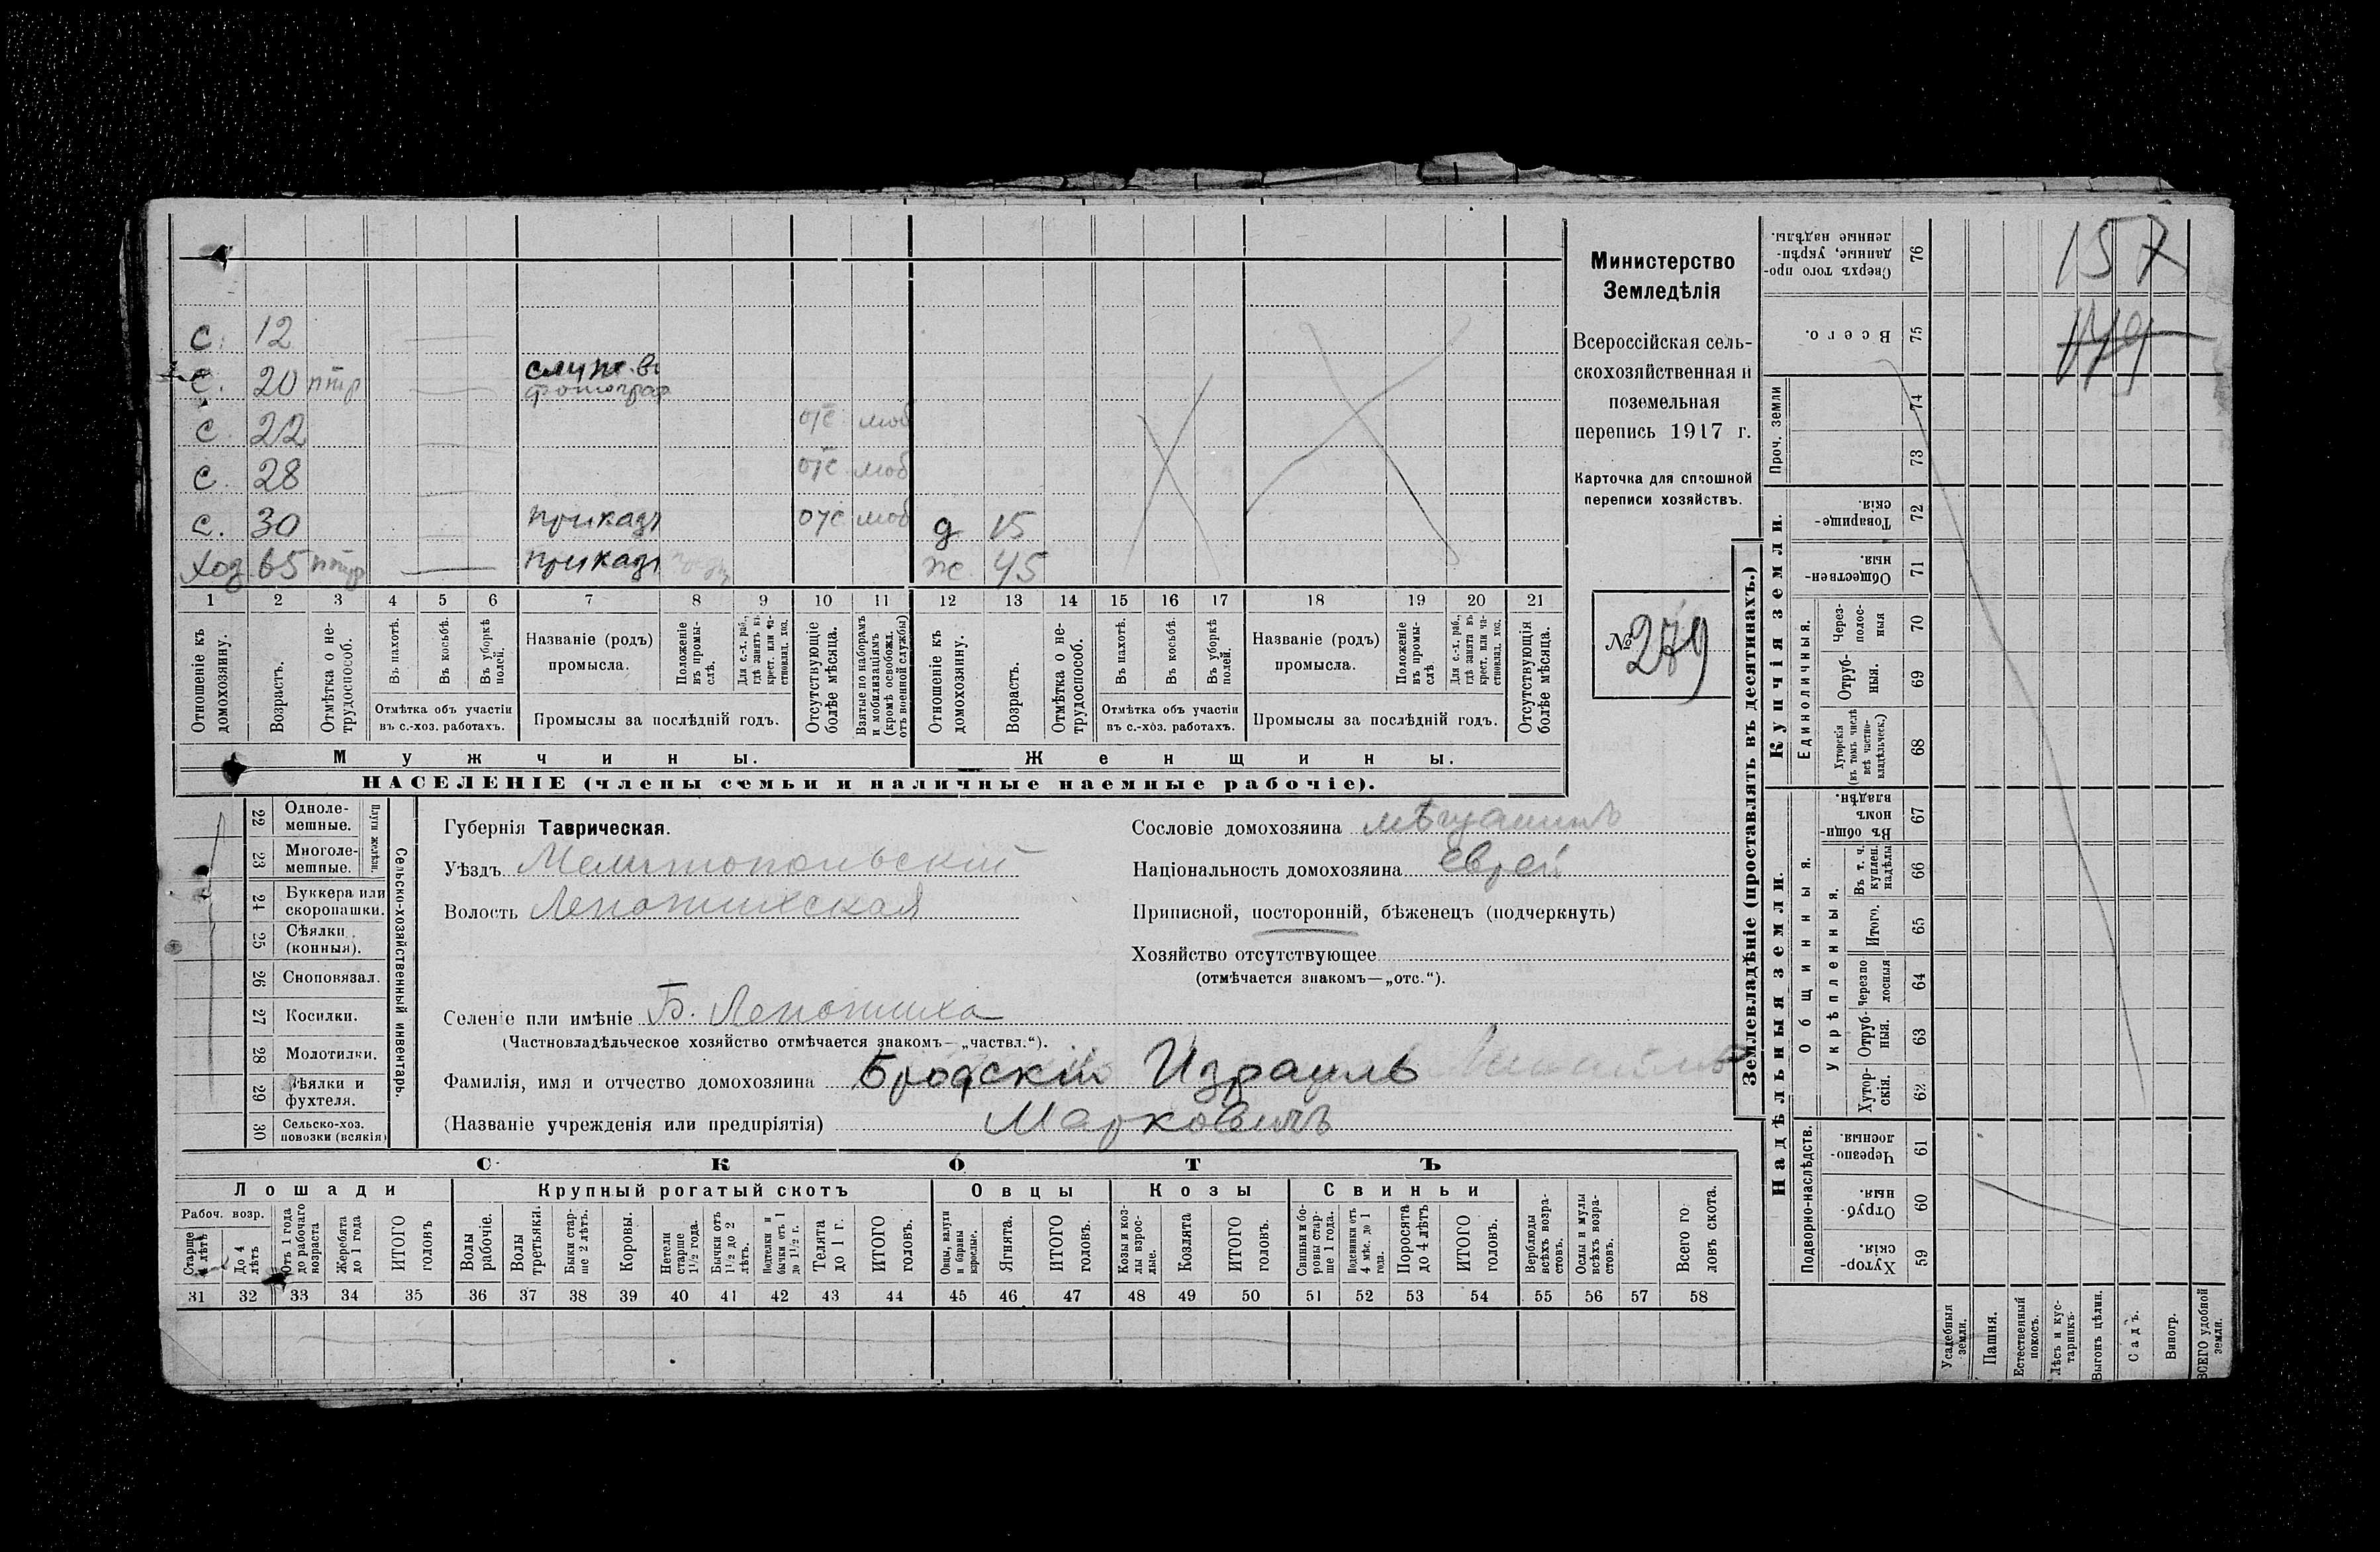 С. 12
С. 20 нтр служ. въ фотограф
с. 22 отс моб
с. 28 отс моб
с. 30 приказ отс моб д 15
хоз. 65 нтр приказ ж. 45
1 2 3 4 5 6 7 8 9 10 11 12 13 14 15 16 17 18 19 20 21
Отношеніе къ домохозяину.
Возрастъ.
Отмѣтка о не-трудоспособ.
Въ пахотѣ.
Въ косьбѣ.
Въ уборкѣ полей.
Отмѣтка объ участіи въ с.-хоз. работахъ.
Названіе (родъ) промысла.
Положеніе въ промы-слѣ.
Для с.-х. раб., гдѣ занятъ въ крест. или ча-стновлад. хоз.
Промыслы за послѣдній годъ.
Отсутствующіе болѣе мѣсяца.
Взятые по наборамъ и мобилизаціямъ (кромѣ освобожд. отъ военной службы)
Отношеніе къ домохозяину.
Возрастъ.
Отмѣтка о не-трудоспособ.
Въ пахотѣ.
Въ косьбѣ.
Въ уборкѣ полей.
Отмѣтка объ участіи въ с.-хоз. работахъ.
Названіе (родъ) промысла.
Положеніе въ промы-слѣ.
Для с.-х. раб., гдѣ занята въ крест. или ча-стновлад. хоз.
Промыслы за послѣдній годъ.
Отсутствующія болѣе мѣсяца.
Мужчины. Женщины.
НАСЕЛЕНІЕ (члены семьи и наличные наемные рабочіе).
Министерство
Земледѣлія
Всероссійская сель-
скохозяйственная и
поземельная
перепись 1917 г.
Карточка для сплошной
переписи хозяйствъ.
№ 279
22 Одноле-мешные.
23 Многоле-мешные.
Плуги желѣзн.
24 Буккера или скоропашки.
25 Сѣялки (конныя).
26 Сноповязал.
27 Косилки.
28 Молотилки.
29 Вѣялки и фухтеля.
30 Сельско-хоз. повозки (всякія)
Сельско-хозяйственный инвентарь.
Губернія Таврическая.
Уѣздъ Мелитопольскій
Волость Лепатихская
Селеніе или имѣніе Б. Лепатиха
(Частновладѣльческое хозяйство отмѣчается знакомъ—„частвл.“).
Фамилія, имя и отчество домохозяина Бродскій Израиль
(Названіе учрежденія или предпріятія) Марковичъ
Сословіе домохозяина мѣщанинъ
Національность домохозяина еврей
Приписной, посторонній, бѣженецъ (подчеркнуть)
Хозяйство отсутствующее
(отмѣчается знакомъ—„отс.“).
СКОТЪ
Лошади Крупный рогатый скотъ Овцы Козы Свиньи
Рабоч. возр.
Старше 4 лѣтъ
До 4 лѣтъ
Отъ 1 года до рабочаго возраста
Жеребята до 1 года
ИТОГО головъ
Волы рабочіе.
Волы третьяки.
Быки стар-ше 2 лѣтъ.
Коровы.
Нетели старше 1½ года.
Бычки отъ 1½ до 2 лѣтъ.
Подтелки и бычки отъ 1 до 1½ г.
Телята до 1 г.
ИТОГО головъ.
Овцы, валухи и бараны взрослые.
Ягнята.
ИТОГО головъ.
Козы и коз-лы взрос-лые.
Козлята
ИТОГО головъ.
Свиньи и бо-ровы стар-ше 1 года.
Подсвинки отъ 4 мѣс. до 1 года.
Поросята до 4 лѣтъ
ИТОГО головъ.
Верблюды всѣхъ возра-стовъ.
Ослы и мулы всѣхъ возра-стовъ.
Всего го-ловъ скота.
31 32 33 34 35 36 37 38 39 40 41 42 43 44 45 46 47 48 49 50 51 52 53 54 55 56 57 58
Землевладѣніе (проставлять въ десятинахъ.)
Надѣльныя земли. Купчія земли.
Подворно-наслѣдств.
Общинныя.
Укрѣпленныя.
Единоличныя.
Проч. земли
Сверхъ того про-данные, укрѣп-ленные надѣлы. 76
Всего. 75
74
73
Товарище-скія 72
Обществен-ныя. 71
Через-полос-ныя 70
Отруб-ныя. 69
Хуторскія (въ томъ числѣ всѣ частно-владѣльческ.) 68
Въ общин-номъ владѣн. 67
Въ т. ч. куплен. надѣлы 66
Итого. 65
Черезпо-лосныя 64
Отруб-ныя. 63
Хутор-скія. 62
Черезпо-лосныя. 61
Отруб-ныя. 60
Хутор-скія. 59
Усадебныя земли.
Пашня.
Естественный покосъ.
Лѣсъ и кус-тарникъ.
Выгонъ цѣлин.
Садъ.
Виногр.
ВСЕГО удобной земли.
157